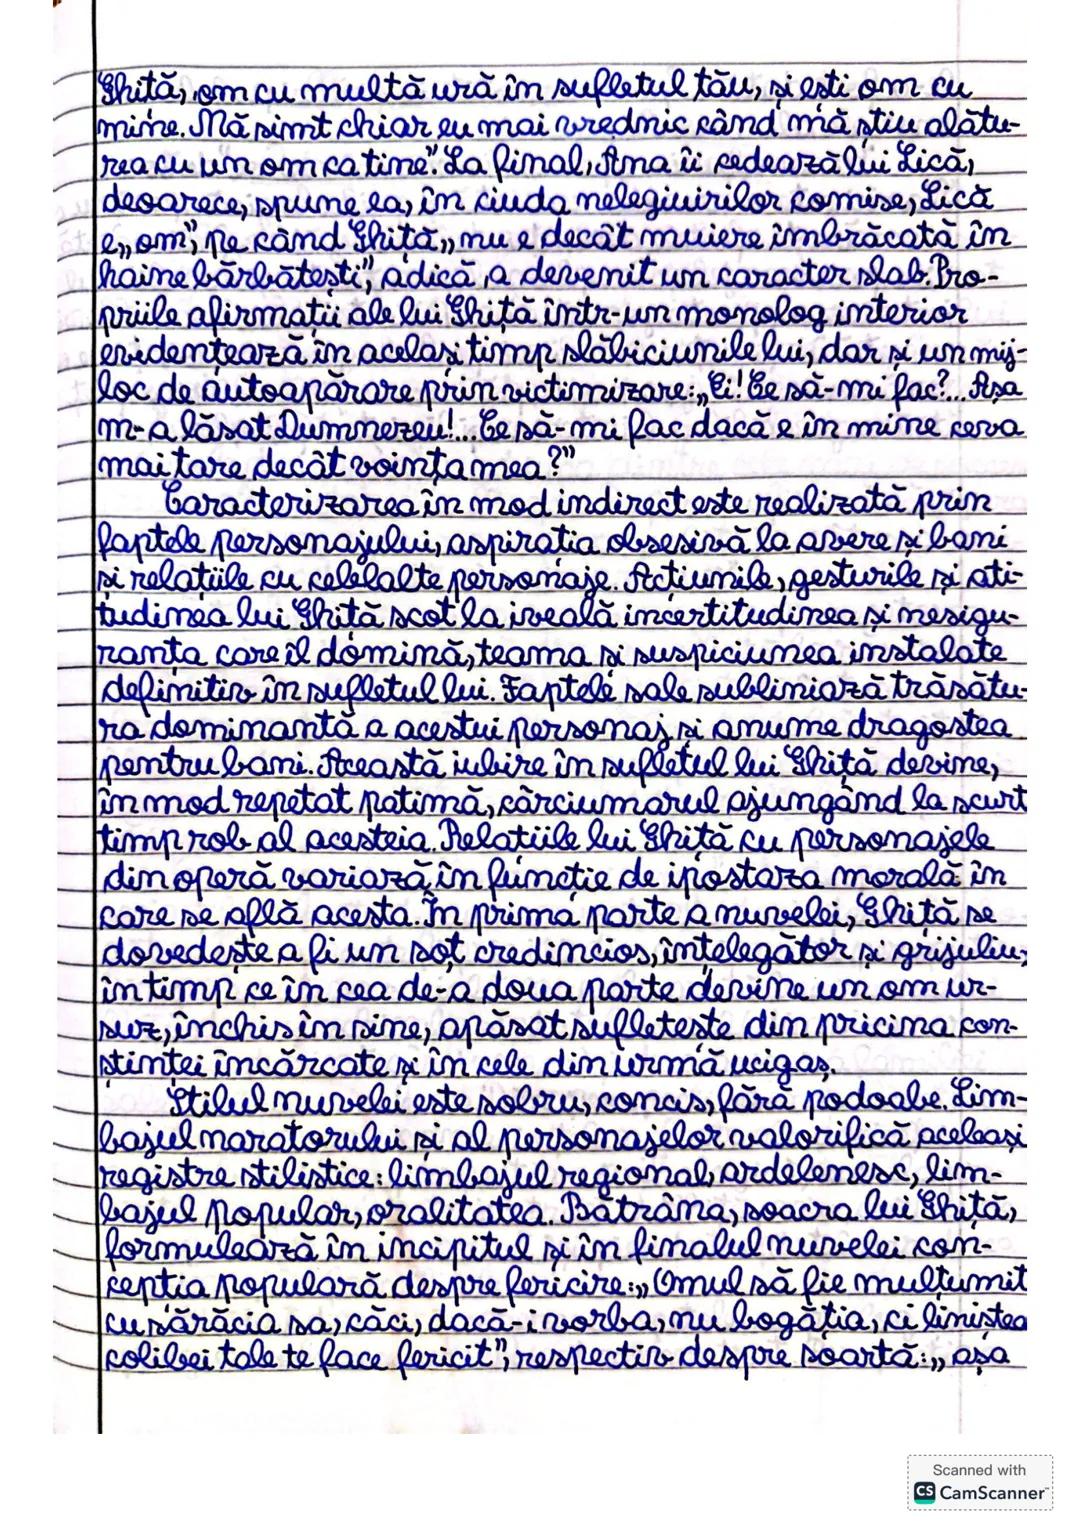 Ghiță, om cu multă ură în sufletul tău, și ești om cu
mine. Mă simt chiar eu mai vrednic când mă știu alătu-
rea cu un om ca tine". La final, Ana îi cedează lui Lică,
deoarece, spune ea, în ciuda nelegiuirilor comise, Lică
e „om", pe când Ghiță „nu e decât muiere îmbrăcată în
haine bărbătești", adică a devenit un caracter slab. Pro-
priile afirmații ale lui Ghiță într-un monolog interior
evidențează în același timp slăbiciunile lui, dar și un mij-
loc de autoapărare prin victimizare: „Ei! Ce să-mi fac?... Așa
m-a lăsat Dumnezeu!... Ce să-mi fac dacă e în mine ceva
mai tare decât voința mea?"
Caracterizarea în mod indirect este realizată prin
faptele personajului, aspirația obsesivă la avere și bani
și relațiile cu celelalte personaje. Acțiunile, gesturile și ati-
tudinea lui Ghiță scot la iveală incertitudinea și nesigu-
ranța care îl domină, teama și suspiciunea instalate
definitiv în sufletul lui. Faptele sale subliniază trăsătu-
ra dominantă a acestui personaj și anume dragostea
pentru bani. Această iubire în sufletul lui Ghiță devine,
în mod repetat patimă, cârciumarul ajungând la scurt
timp rob al acesteia. Relațiile lui Ghiță cu personajele
din operă variază în funcție de ipostaza morală în
care se află acesta. În prima parte a nuvelei, Ghiță se
dovedește a fi un soț credincios, înțelegător și grijuliu,
în timp ce în cea de-a doua parte devine un om ur-
suz, închis în sine, apăsat sufletește din pricina con-
științei încărcate și în cele din urmă ucigaș.
Stilul nuvelei este sobru, concis, fără podoabe. Lim-
bajul naratorului și al personajelor valorifică aceleași
registre stilistice: limbajul regional, ardelenesc, lim-
bajul popular, oralitatea. Bătrâna, soacra lui Ghiță,
formulează în incipitul și în finalul nuvelei con-
cepția populară despre fericire: „Omul să fie mulțumit
cu sărăcia sa, căci, dacă-i vorba, nu bogăția, ci liniștea
colibei tale te face fericit", respectiv despre soartă: „așa
Scanned with
CS CamScanner